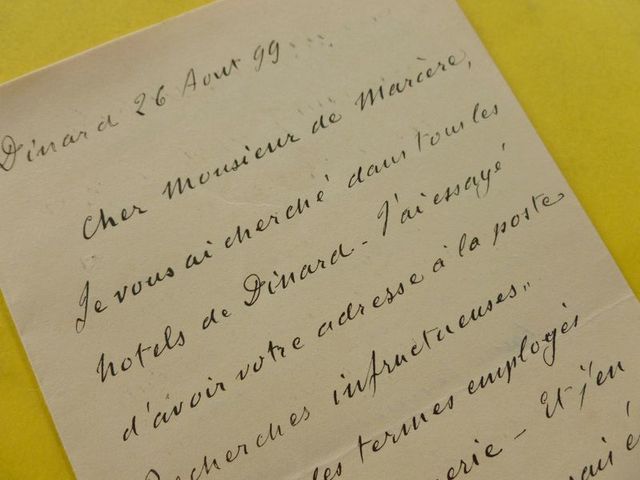 Dinard 26 Aout 99
Cher Monsieur de Marcère,
Je vous ai cherché dans tous les
hotels de Dinard - J'ai essayé
d'avoir votre adresse à la poste
Recherches infructueuses..
les termes employés
Et j'en